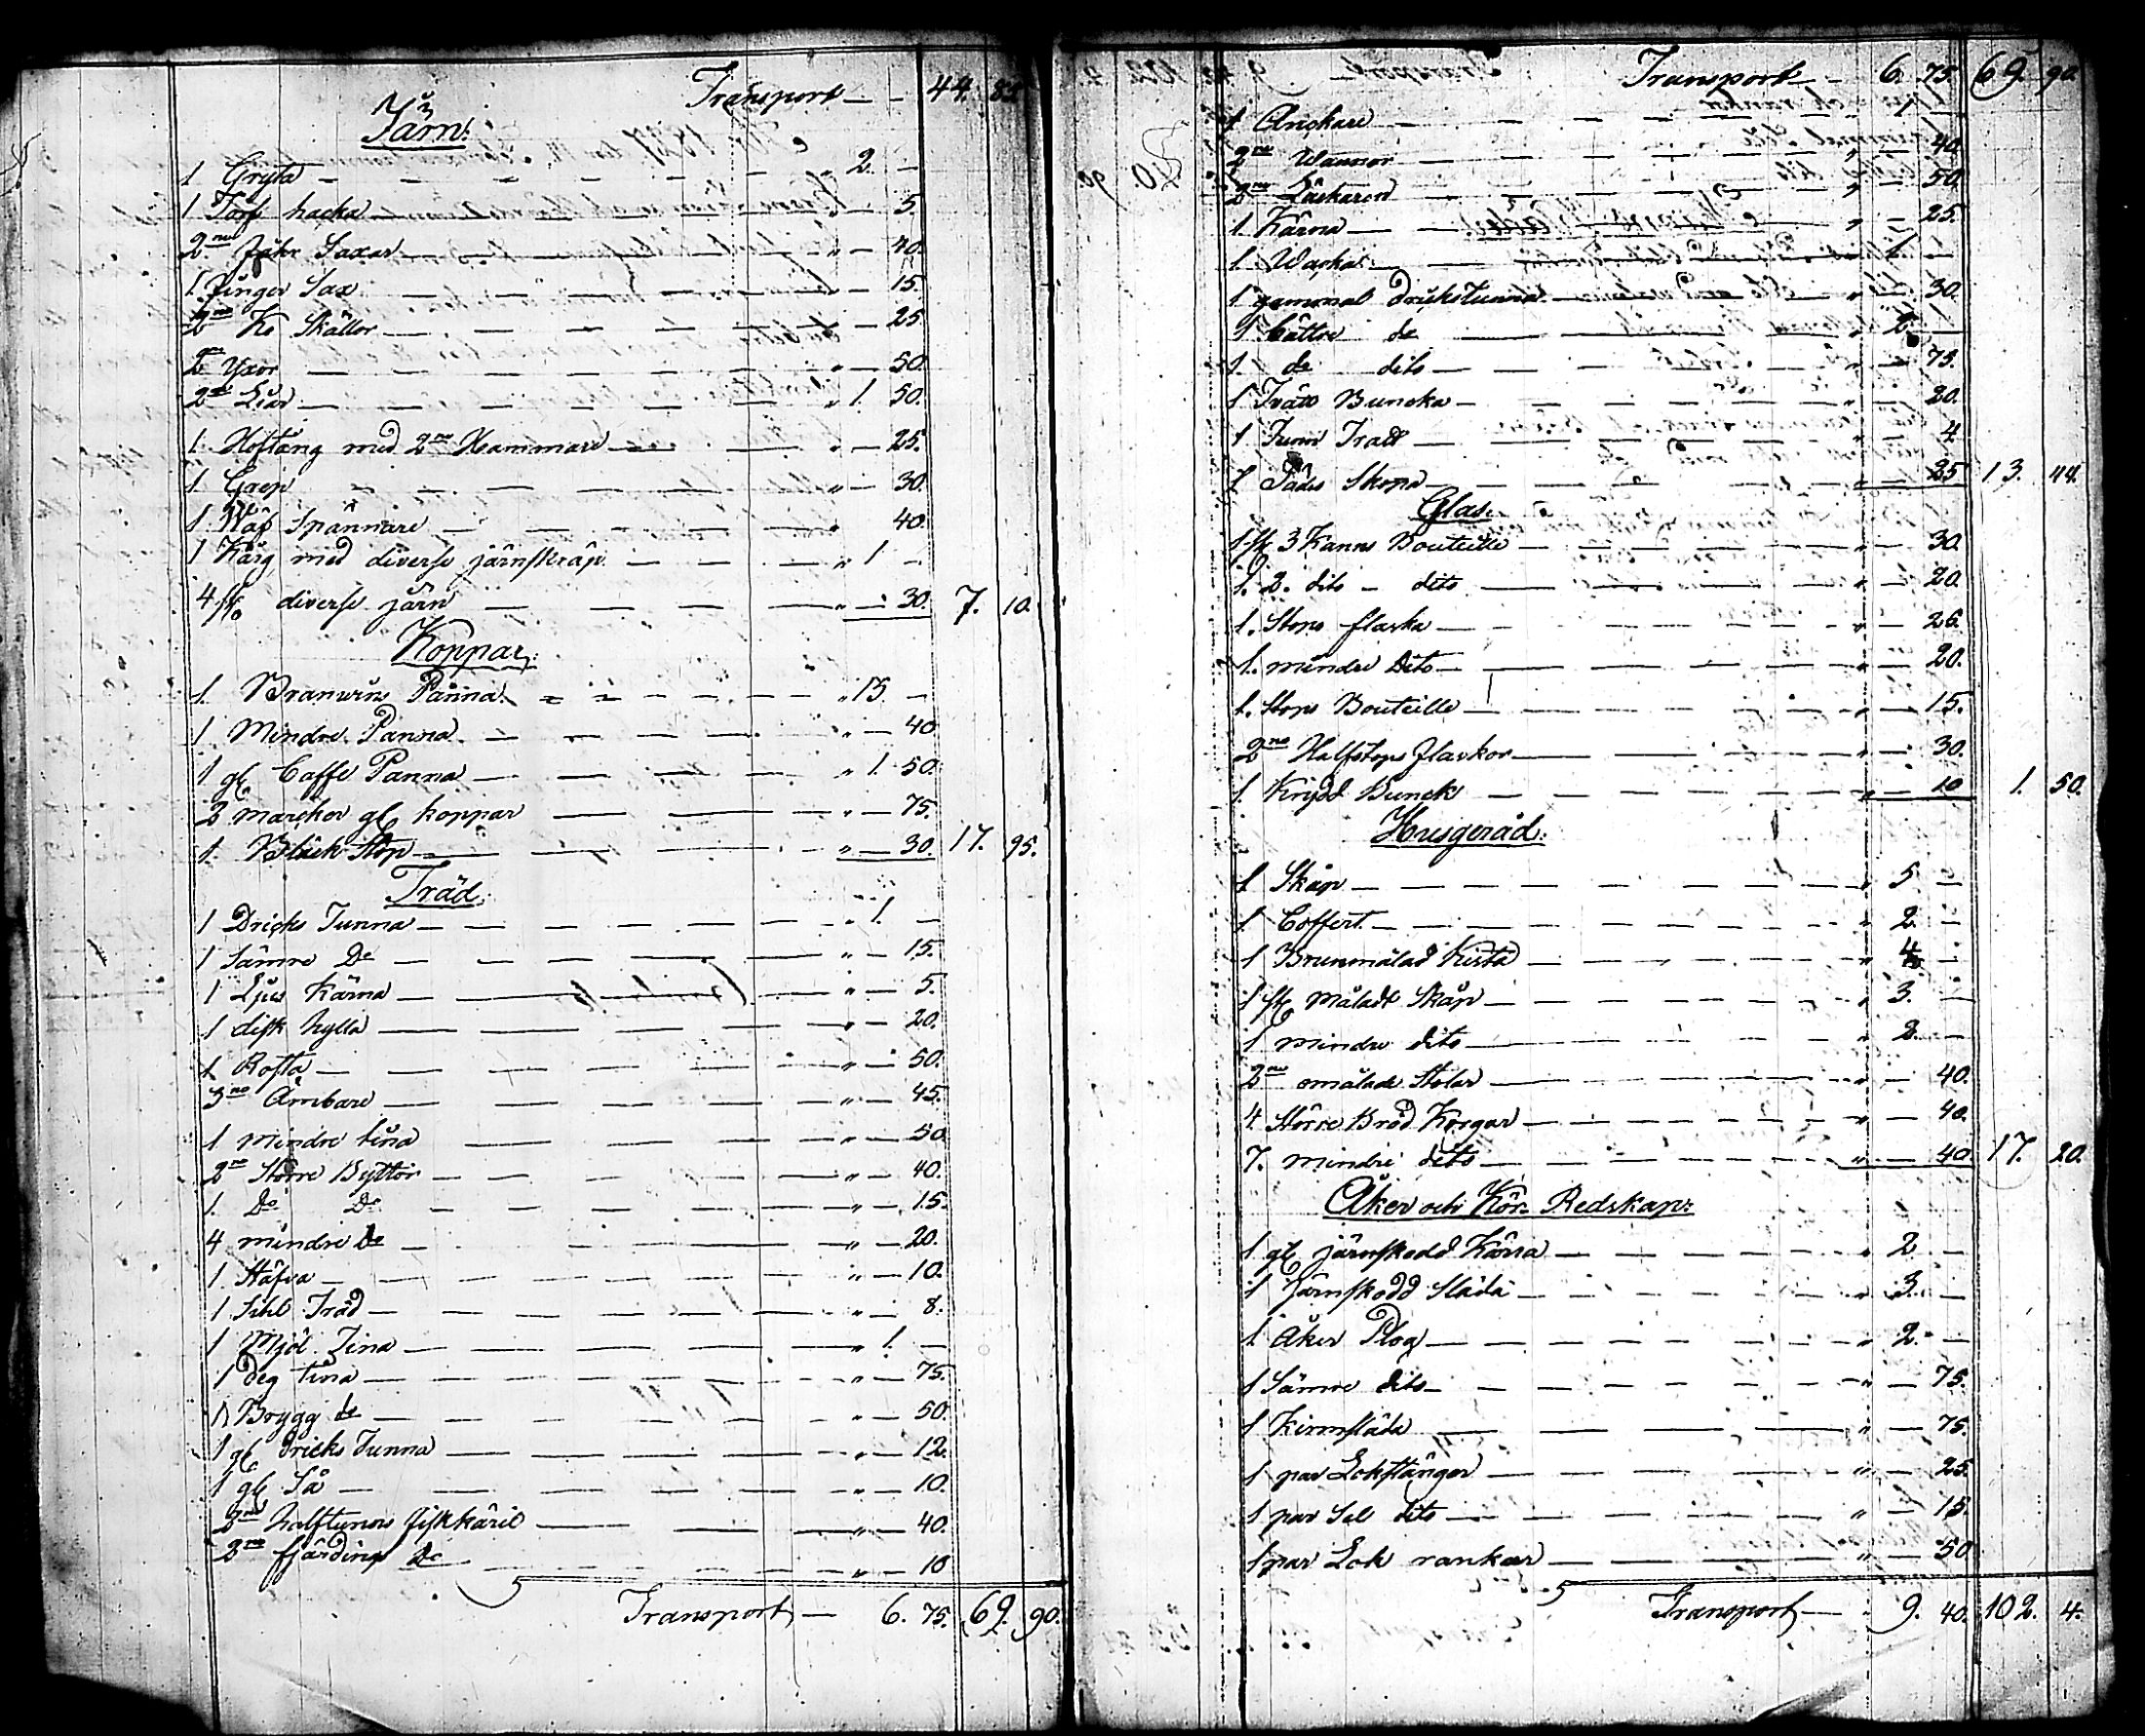 Transport — 44. 85
Järn:
1 Gryta — 2. —
1 Torf hacka — 5.
2ne Fåhr Saxar — 40.
1 Finger Sax — 15.
2ne Ko Skällor — 25
2ne Yxor — 50.
2ne Liar — 1. 50.
1. Hoftång med 2ne Hammare — 25.
1. Grep — 30.
1. Wäf Spännare — 40.
1 Korg med diverse järnskrap — 1 —
4 diverse järn — 30. 7. 10.
Koppar:
1. Branwins Panna — 15. —
1. Mindre Panna — 40
1 gl Caffe Panna — 1. 50.
2 marcker gl koppar — 75.
1. Bläck Stop — 30. 17. 95.
Träd:
1 Dricks Tunna — 1. —
1 Sämre Do — 15.
1 Ljus Kärna — 5.
1 disk hylla — 20.
1 Rosta — 50.
3ne Ämbare — 45.
1 mindre tina — 50
2ne Större Byttor — 40.
1. Do Do — 15.
4 mindre Do — 20.
1. Håfva — 10.
1 Sihl Tråd — 8.
1 Mjöl Tina — 1. —
1 Deg tina — 75.
1 Brygg do — 50.
1 gl Dricks Tunna — 12.
1 gl Så — 10.
2ne halftunns Fiskkäril — 40.
2ne fjärdings Do — 10
Transport — 6. 75. 69. 90.
Transport — 6. 75. 69. 90.
1 Anckare — 1 —
2ne Wannor — 40.
2ne — 50.
1. Kärna — 25.
1. — 1. —
1 gammal Drickstunna — 30.
1 bättre do — 2. —
1 do dito — 75.
1 Trätt Buncka — 20.
1 Tunn Tratt — 4
1 Sädes Skopa — 25 13. 44.
Glas:
1 st 3 Kanns Bouteille — 30.
1. 2. dito – dito — 20.
1. Stops flaska — 25.
1. mindre Dito — 20.
1. Stops Bouteille — 15.
2ne Halfstops Flaskor — 30.
1. Krydd Bunck — 10 1. 50.
Husgeråd:
1 Skåp — 5 —
1 Coffert — 2. —
1 Brunmålad Kista — 4. —
1 st Måladt Skåp — 3. —
1 mindre dito — 2. —
2ne omålade Stolar — 40.
4 Större Bröd Korgar — 40.
7. mindre dito — 40 17. 20.
Åker och Kör Redskap:
1 gl järnskodd Kärra — 2 —
1 Järnskodd Släda — 3. —
1 Åker Plog — 2. —
1 Sämre dito — 75.
1 Kirmsläda — 75.
1 par Lokstänger — 25.
1 par Sel dito — 15.
1 par Lok rankar — 50
Transport — 9. 40. 102. 4.